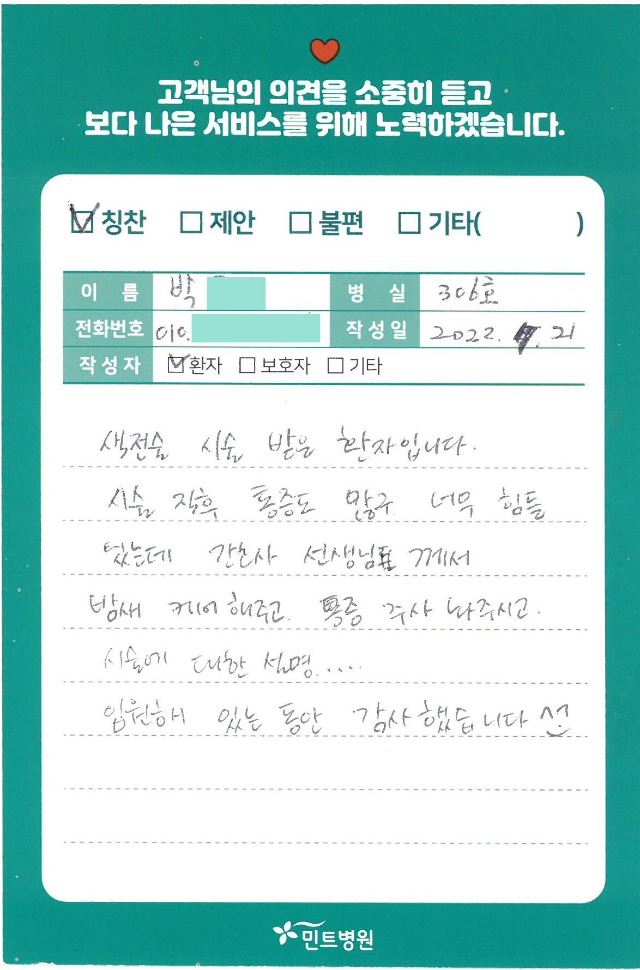 고객님의 의견을 소중히 듣고
보다 나은 서비스를 위해 노력하겠습니다.
칭찬 제안 불편 기타( )
이 름 박 병 실 306호
전화번호 010. 작성일 2022. 9. 21
작성자 환자 보호자 기타
색전술 시술 받은 환자입니다.
시술 직후 통증도 많구 너무 힘들
었는데 간호사 선생님 께서
밤새 케어해주고 통증 주사 놔주시고.
시술에 대한 설명.....
입원해서 있는 동안 감사했습니다
민트병원